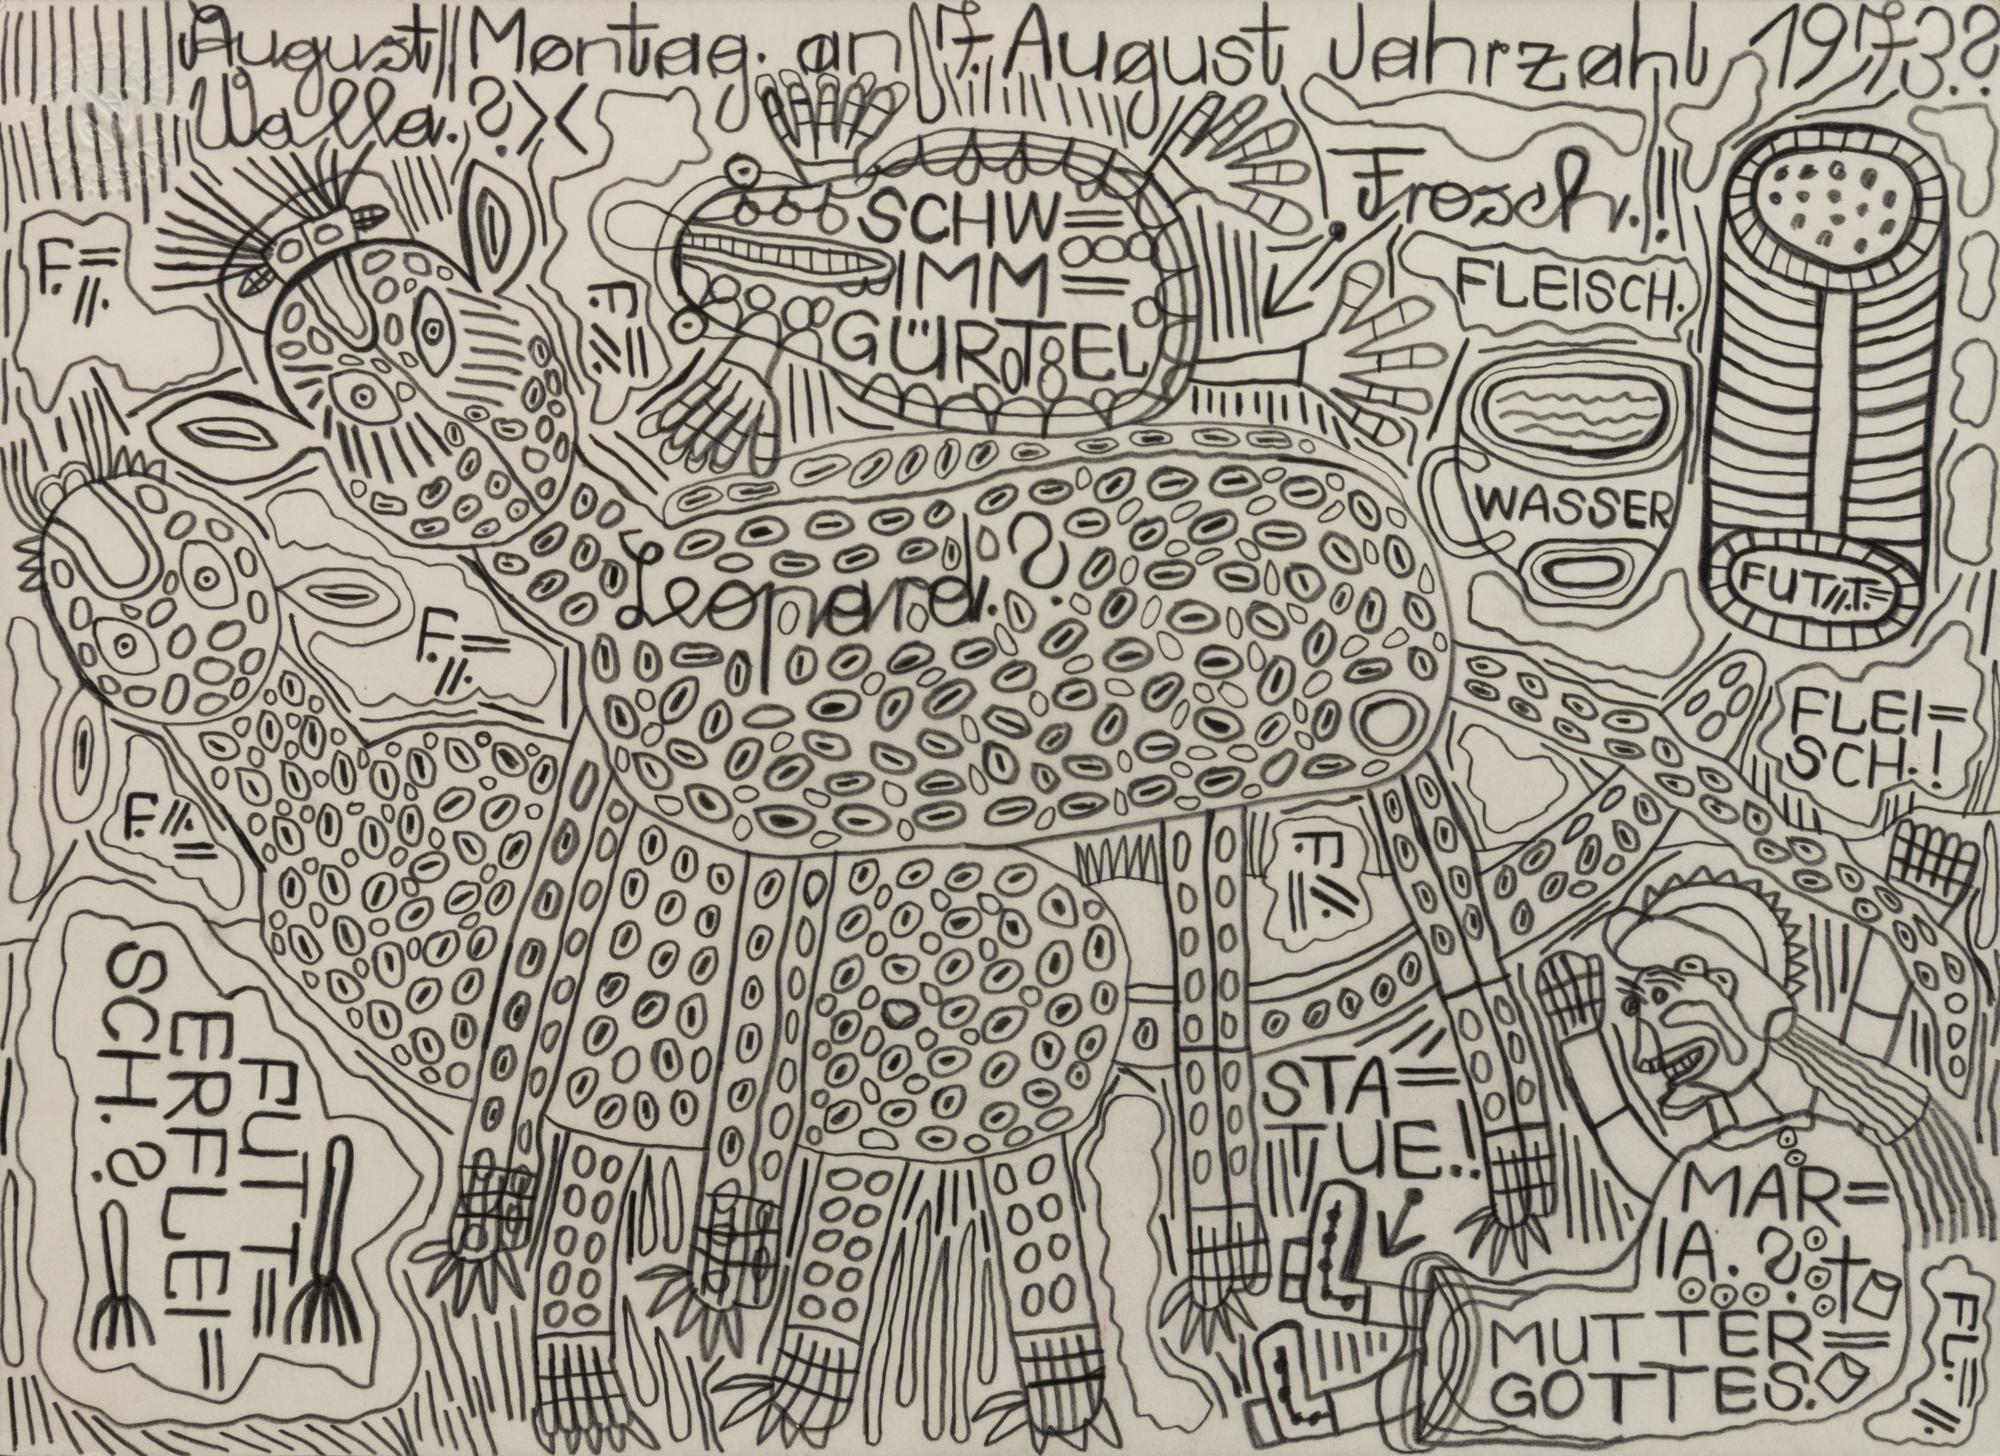 August Montag. an 7. August Jahrzahl 1973.?
Walla.?
F.=//.
F.=//.
SCHW=
IMM=
GÜRTEL
Frosch.!
FLEISCH.
WASSER
FUT//.T.=
Leopard.?
F.=//.
F.//.=
F.//.=
FLEI=
SCH.!
FUTT=
ERFLEI=
SCH.?
STA=
TUE.!
MAR=
IA.?
MUTTER=
GOTTES.
FL.=//.